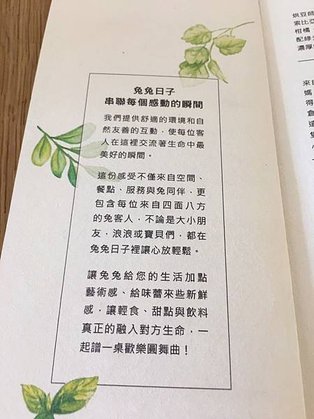 兔兔日子
串聯每個感動的瞬間
我們提供舒適的環境和自
然友善的互動，使每位客
人在這裡交流著生命中最
美好的瞬間。
這份感受不僅來自空間、
餐點、服務與兔同伴，更
包含每位來自四面八方
的兔客人，不論是大小朋
友，浪浪或寶貝們，都在
兔兔日子裡讓心放輕鬆。
讓兔兔給您的生活加點
藝術感、給味蕾來些新鮮
感，讓輕食、甜點與飲料
真正的融入對方生命，一
起譜一桌歡樂圓舞曲！
烘豆師
索比亞
柑橘
配綠
濃厚
來自
媽